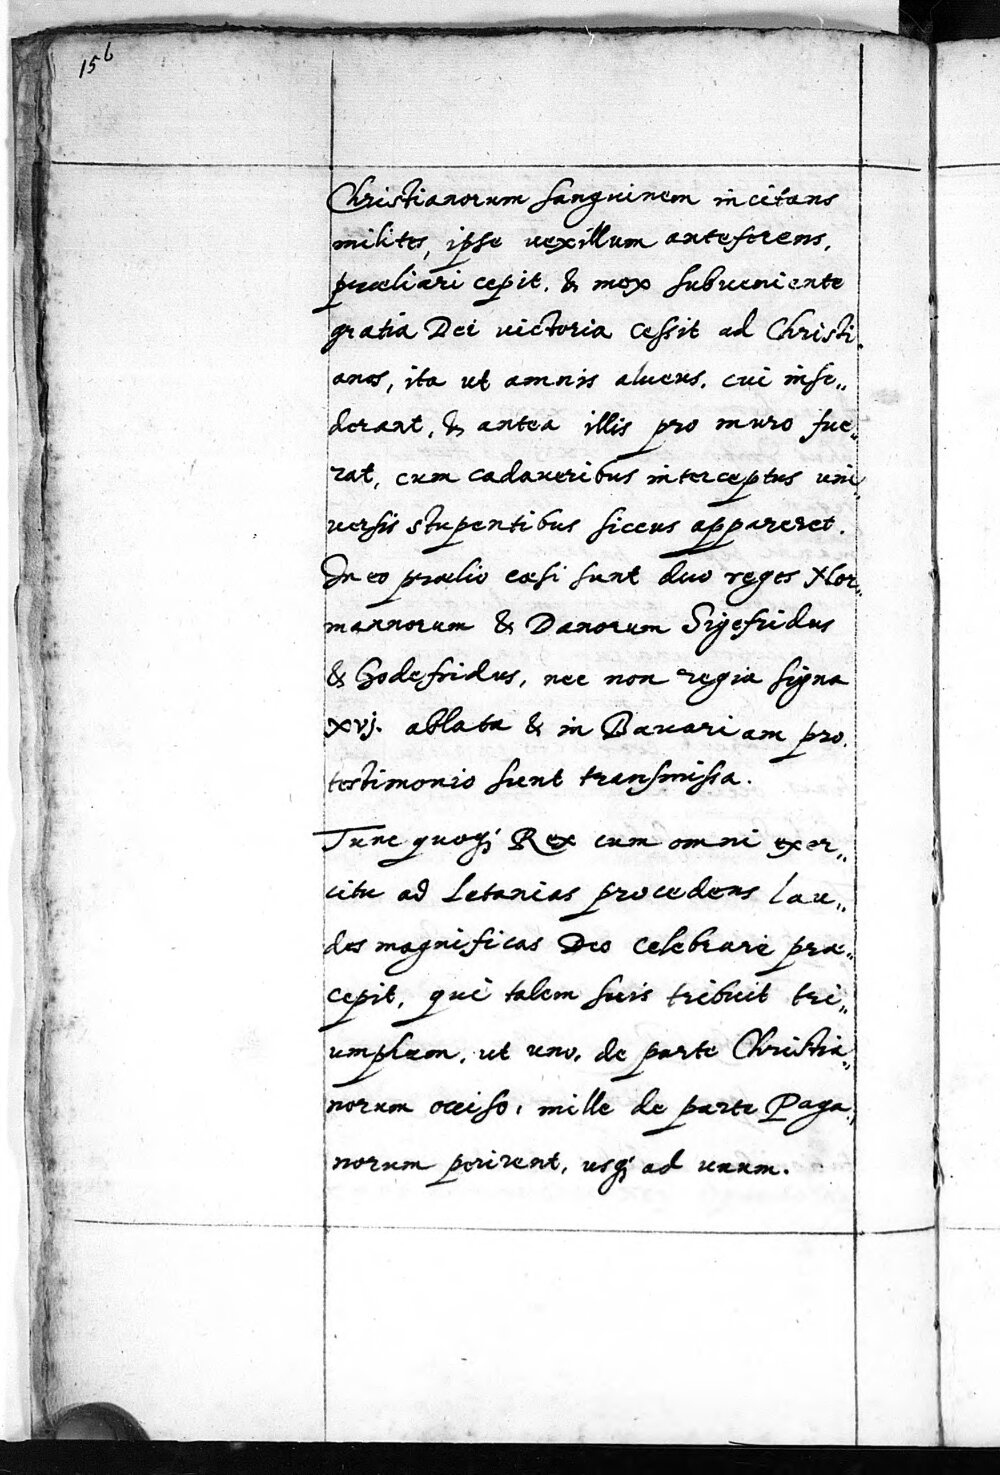 156
Christianorum sanguinem incitans
milites, ipse uexillum anteferens,
præliari cepit. & mox subueniente
gratia Dei uictoria cessit ad Christi„
anos, ita ut amnis alueus, cui inse„
derant, & antea illis pro muro fue„
rat, cum cadaueribus interceptus uni„
uersis stupentibus siccus appareret.
In eo prælio cæsi sunt duo reges Nor„
mannorum & Danorum Sigefridus
& Godefridus, nec non regia signa
xvj. ablata & in Bauariam pro
testimonio sunt transmissa.
Tunc quoq; Rex cum omni exer„
citu ad Letanias procedens lau„
des magnificas Deo celebrare præ„
cepit, qui talem suis tribuit tri„
umphum, ut uno, de parte Christia„
norum occiso, mille de parte Paga„
norum perirent, usq; ad unum.